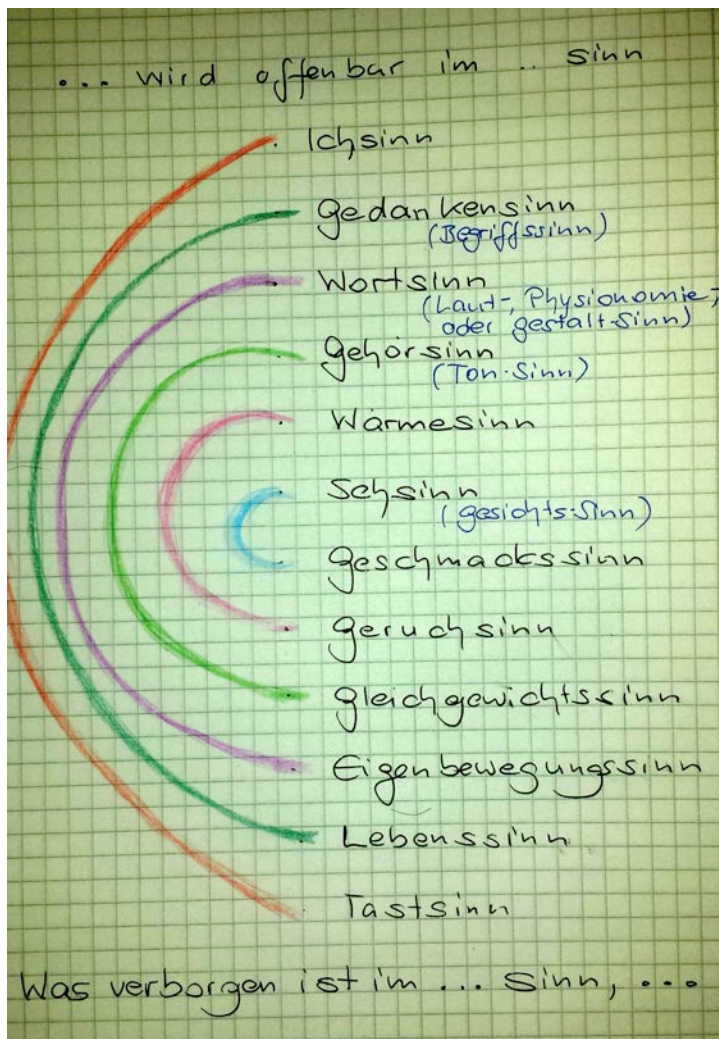 ... wird offenbar im .. sinn
Ichsinn
Gedankensinn
(Begriffssinn)
Wortsinn
(Laut-, Physionomie-,
oder Gestalt-Sinn)
Gehörsinn
(Ton-Sinn)
Wärmesinn
Sehsinn
(Gesichts-Sinn)
Geschmackssinn
Geruchsinn
Gleichgewichtssinn
Eigenbewegungssinn
Lebenssinn
Tastsinn
Was verborgen ist im ... Sinn, ...